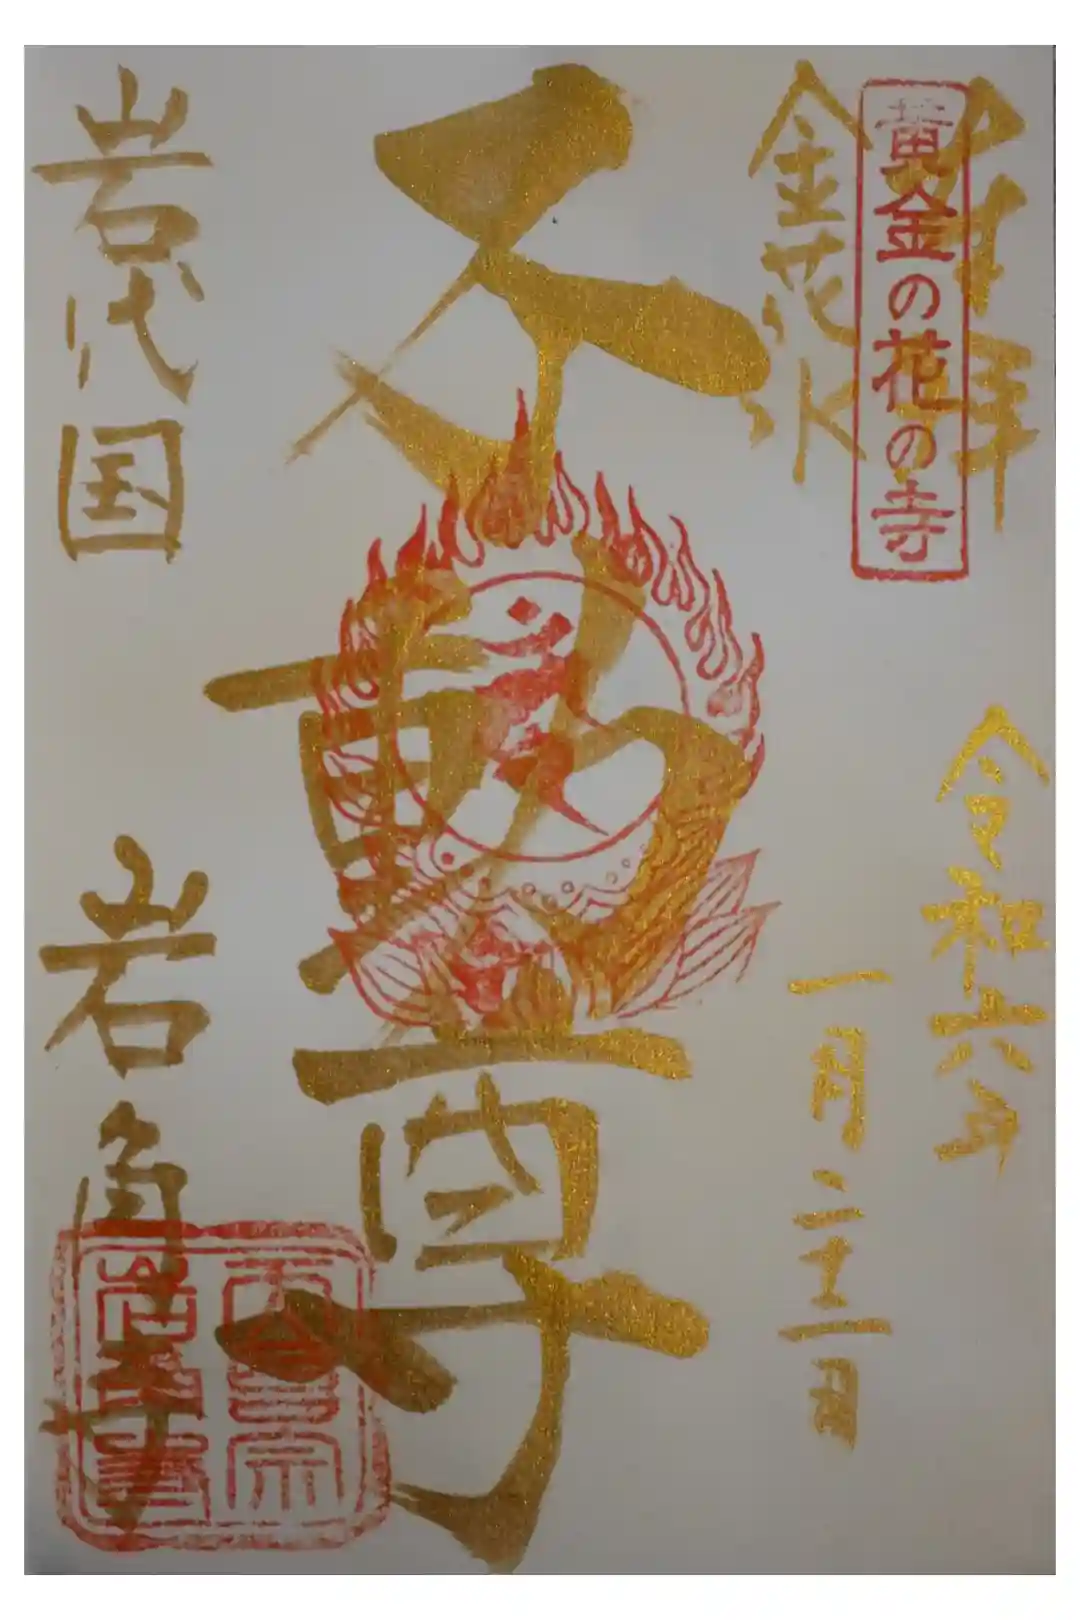 奉拝
黄金の花の寺
令和六年
金花水
一月二十二日
不動尊
岩代国
岩角寺
天台宗